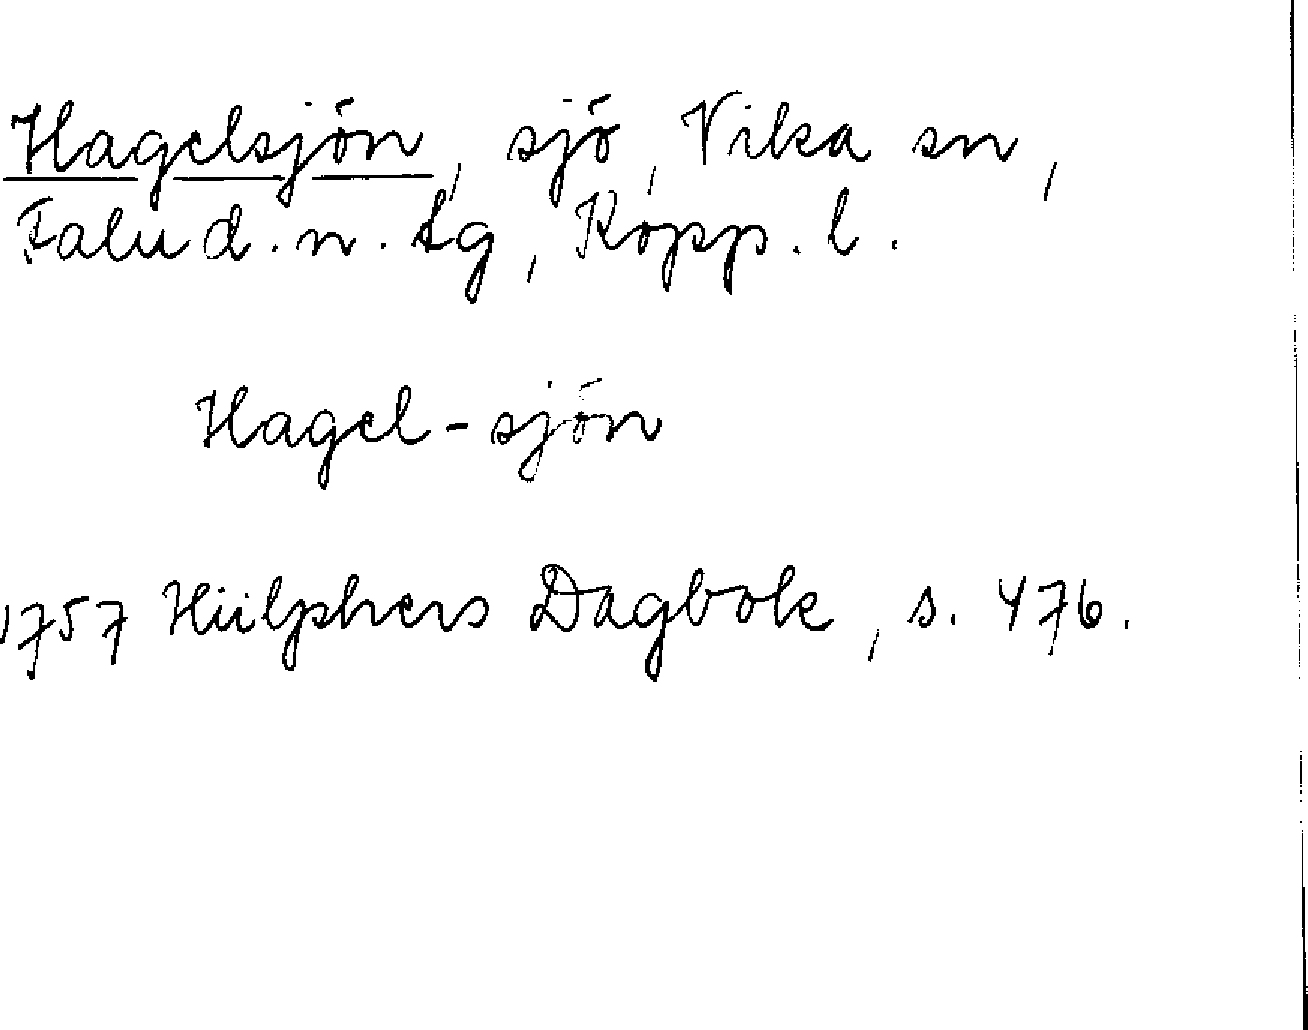 Hagelsjön, sjö, Vika sn,
Falu d. n. tg, Kopp. l.
Hagel-sjön
1757 Hülphers Dagbok, s. 476.